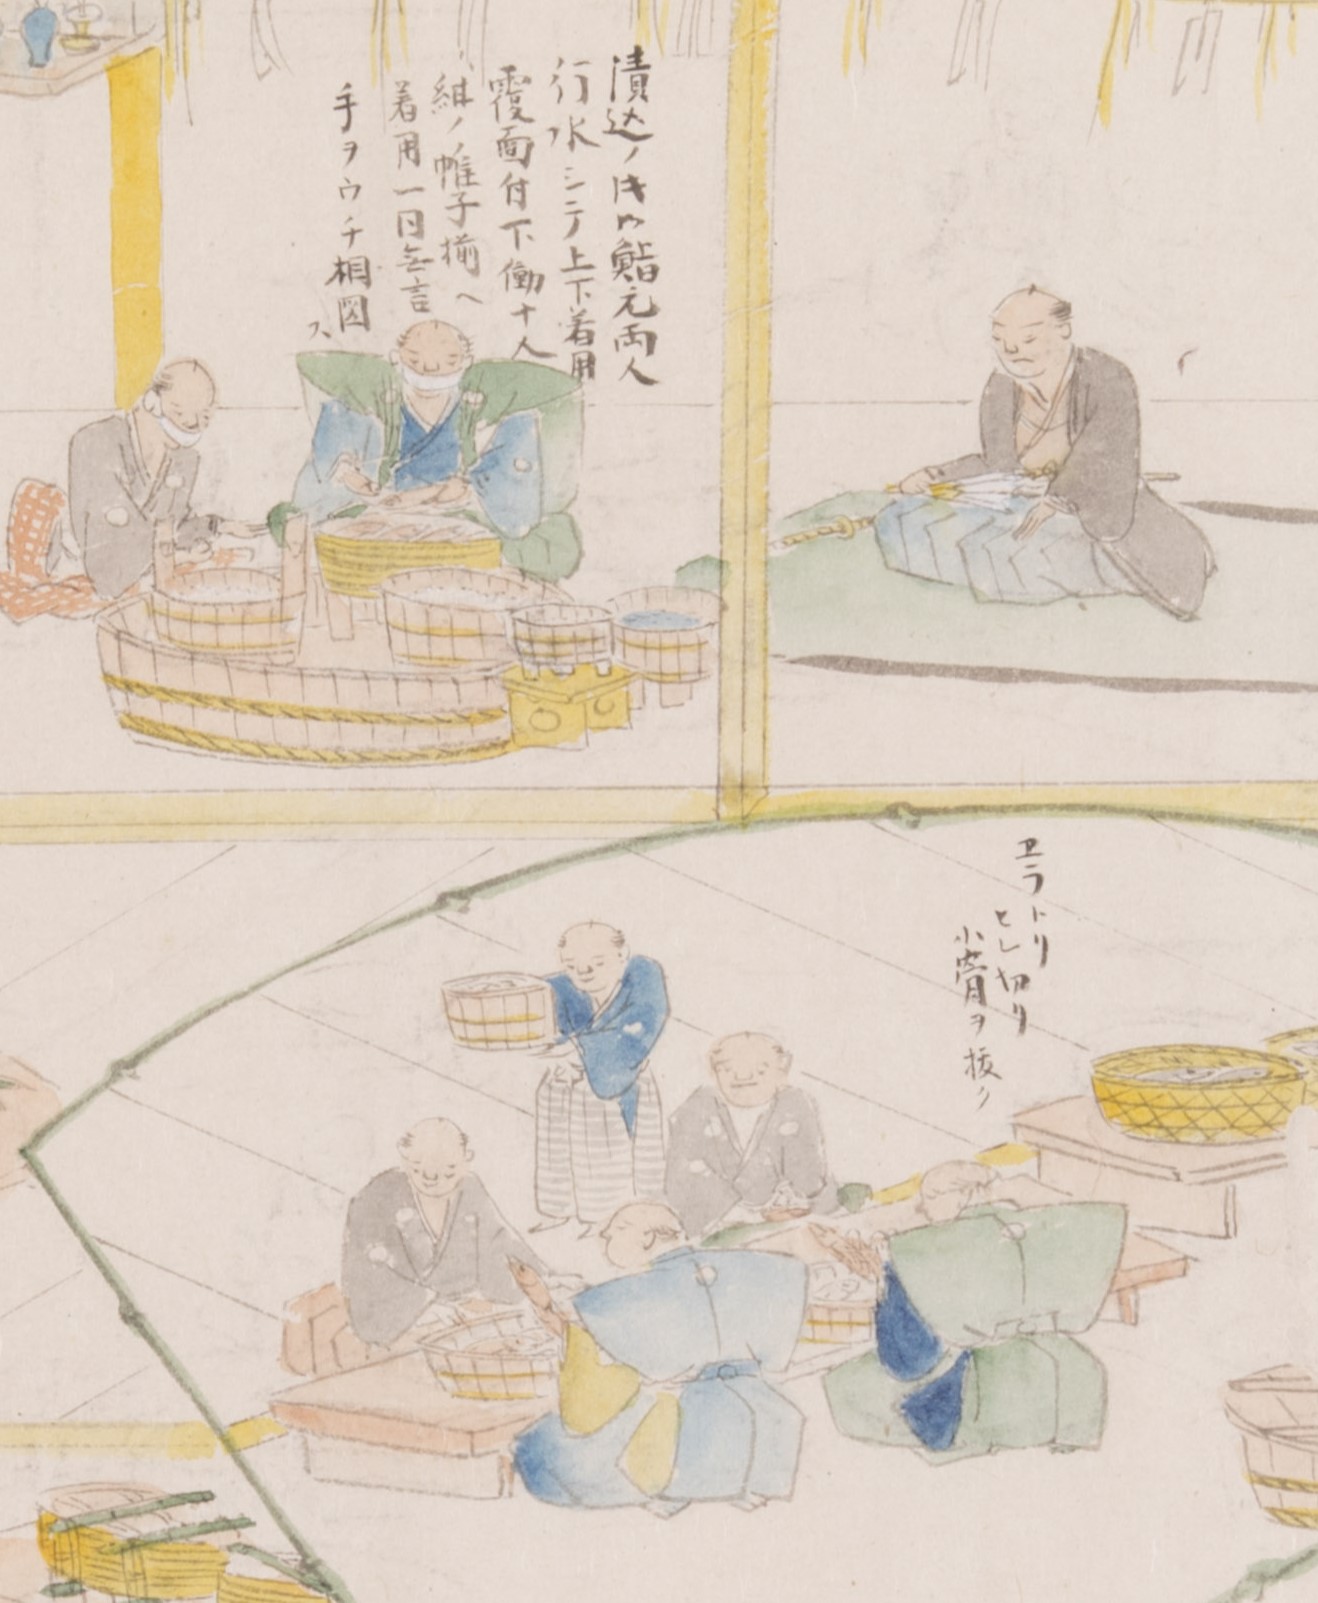 漬込ノ

行水シテ上下着用
覆面付下働十人
紺ノ帷子揃ヘ
着用一日無言
手ヲウチ相図
ス
エラトリ
ヒレ切り
小骨ヲ抜ク